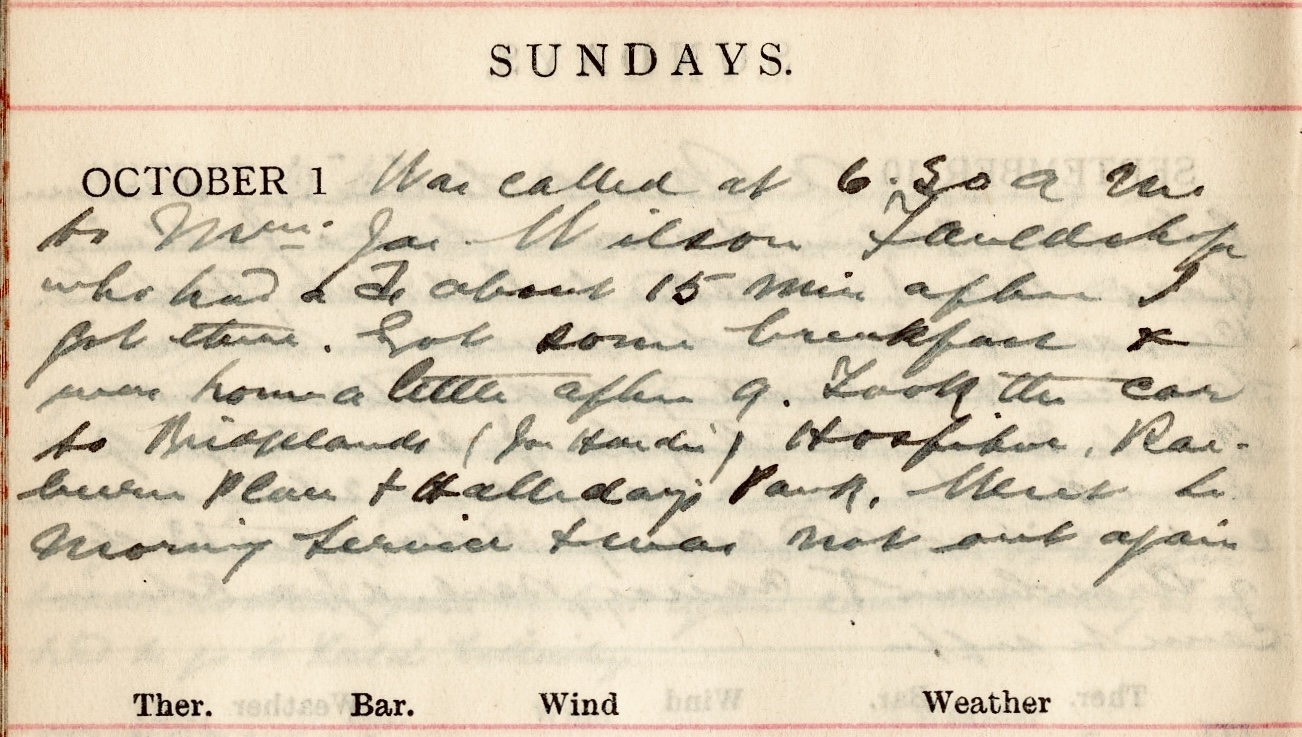 SUNDAYS.
OCTOBER 1 Was called at 6.30 a m
to Mrs. Jas. Wilson Fauldshope
who had a about 15 min after I
got there. Got some breakfast &
was home a little after 9. Took the car
to Bridgelands (Jas Hardie) Hospital, Rae-
burn Place & Halliday's Park. Went to
Morning Service & was not out again
Ther. Bar. Wind Weather